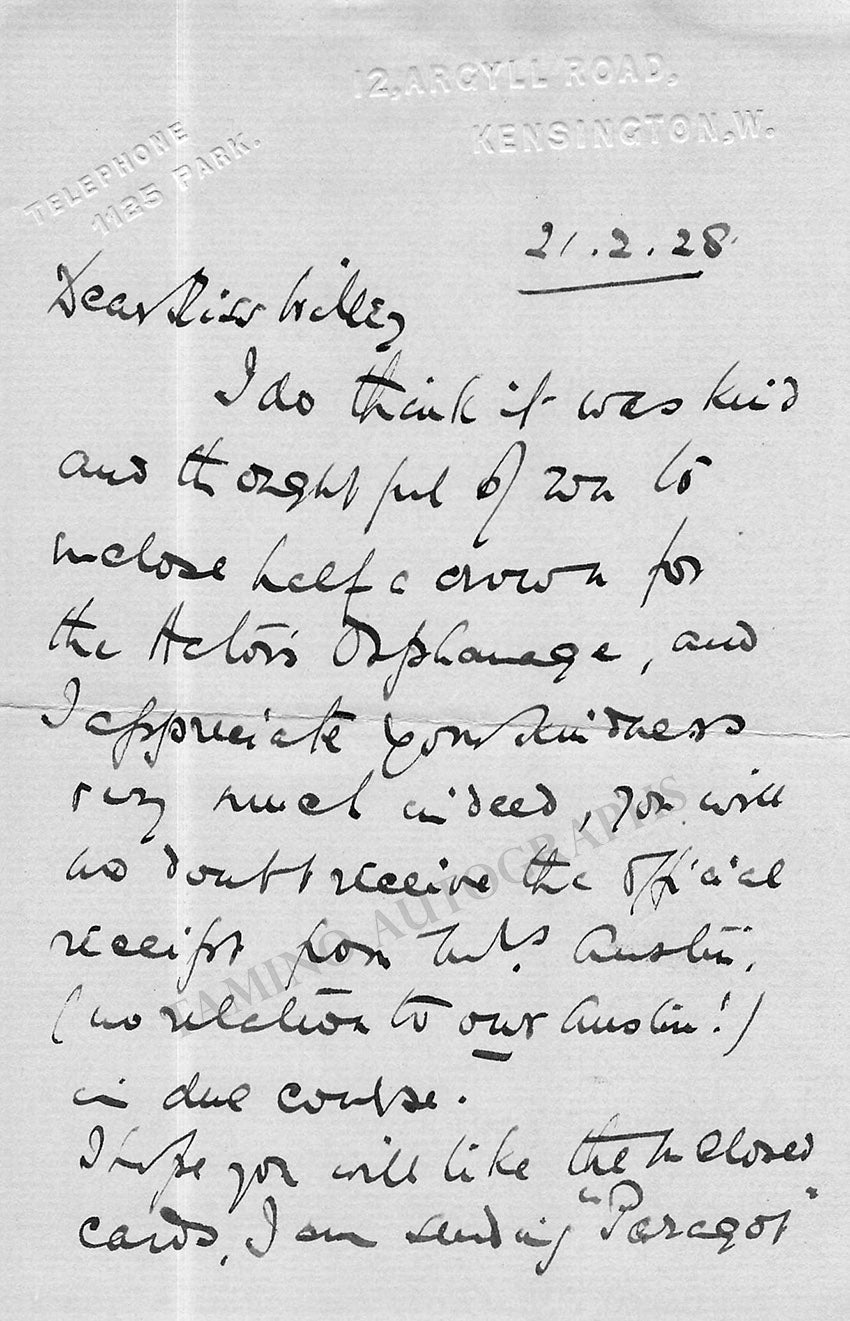 12, ARGYLL ROAD,
KENSINGTON, W.
TELEPHONE
1125 PARK.
21.2.28.
Dear Miss Willey
I do think it was kind
and thoughtful of you to
inclose half a crown for
the Actor's Orphanage, and
I appreciate your kindness
very much indeed, you will
no doubt receive the official
receipt from Mrs. Austin,
(no relation to our Austin!)
in due course.
I hope you will like the inclosed
cards, I am sending "Paragot"
TAMINO AUTOGRAPHS